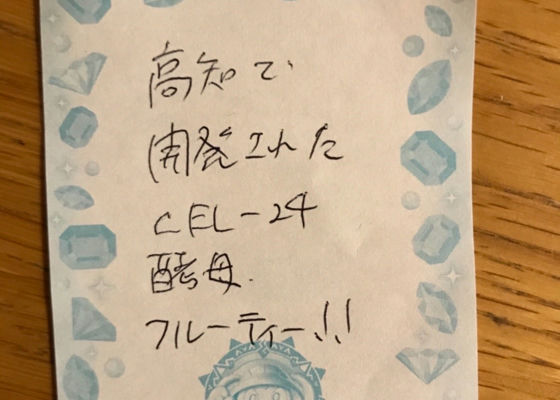 高知で
開発された
CEL-24
酵母.
フルーティー!!